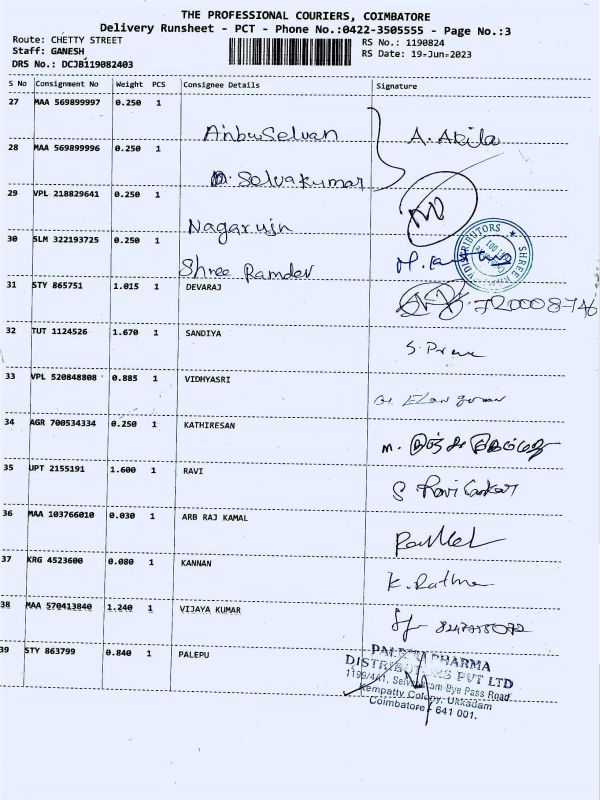 THE PROFESSIONAL COURIERS, COIMBATORE
Delivery Runsheet - PCT - Phone No.:0422-3505555 - Page No.:3
Route: CHETTY STREET
Staff: GANESH
DRS No.: DCJB119082403
RS No.: 1190824
RS Date: 19-Jun-2023
S No Consignment No Weight PCS Consignee Details Signature
27 MAA 569899997 0.250 1 Anbuselvan A. Akila
28 MAA 569899996 0.250 1 Selvakumar
29 VPL 218829641 0.250 1 Nagarujn
30 SLM 322193725 0.250 1 Shree Ramdev
DISTRIBUTORS ★ SHREE
31 STY 865751 1.015 1 DEVARAJ
32 TUT 1124526 1.670 1 SANDIYA
33 VPL 520848808 0.885 1 VIDHYASRI
34 AGR 700534334 0.250 1 KATHIRESAN
35 UPT 2155191 1.600 1 RAVI S Ravi Sankar
36 MAA 103766010 0.030 1 ARB RAJ KAMAL
37 KRG 4523600 0.080 1 KANNAN K. Rathna
38 MAA 570413840 1.240 1 VIJAYA KUMAR
39 STY 863799 0.840 1 PALEPU
PALEPU PHARMA
DISTRIBUTORS PVT LTD
Bye Pass Road
Kempatty Colony, Ukkadam
Coimbatore - 641 001.